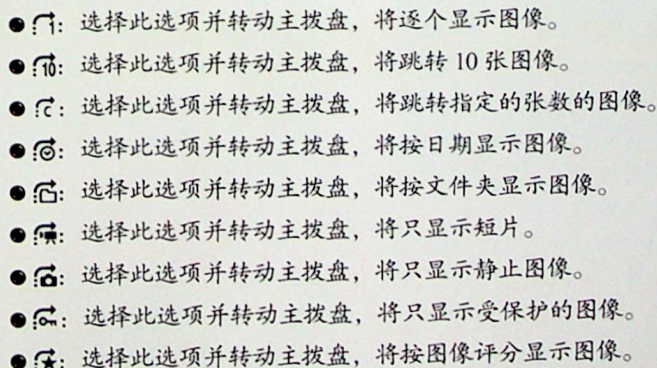 ● 1: 选择此选项并转动主拨盘，将逐个显示图像。
● 10: 选择此选项并转动主拨盘，将跳转 10 张图像。
● C: 选择此选项并转动主拨盘，将跳转指定的张数的图像。
● : 选择此选项并转动主拨盘，将按日期显示图像。
● : 选择此选项并转动主拨盘，将按文件夹显示图像。
● : 选择此选项并转动主拨盘，将只显示短片。
● : 选择此选项并转动主拨盘，将只显示静止图像。
● : 选择此选项并转动主拨盘，将只显示受保护的图像。
● ★: 选择此选项并转动主拨盘，将按图像评分显示图像。